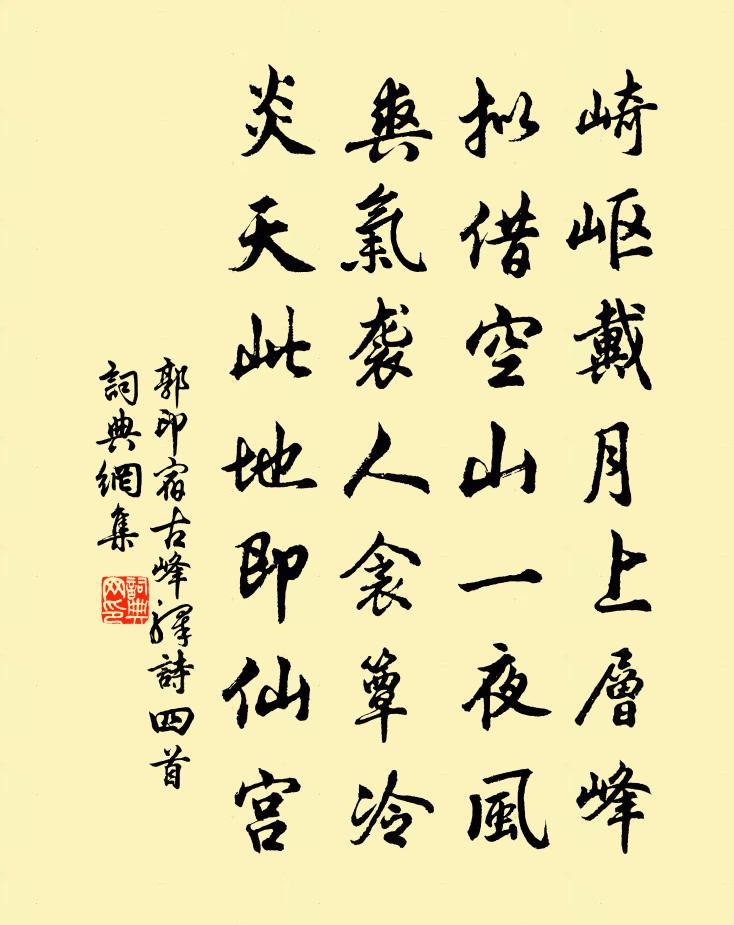 崎岖戴月上層峰
拟借空山一夜風
爽氣袭人衾簟冷
炎天此地即仙宫
郭印宿古峰驛詩四首
詞典網集
詞典网印